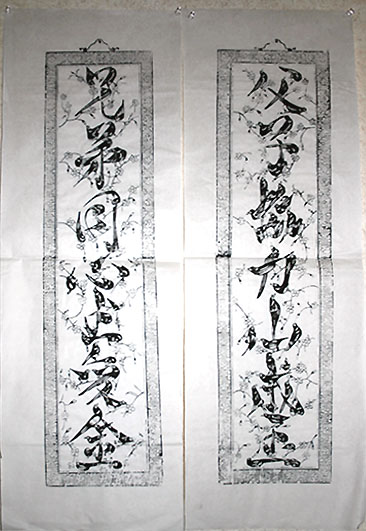 父子協力山成玉
兄弟同心土變金